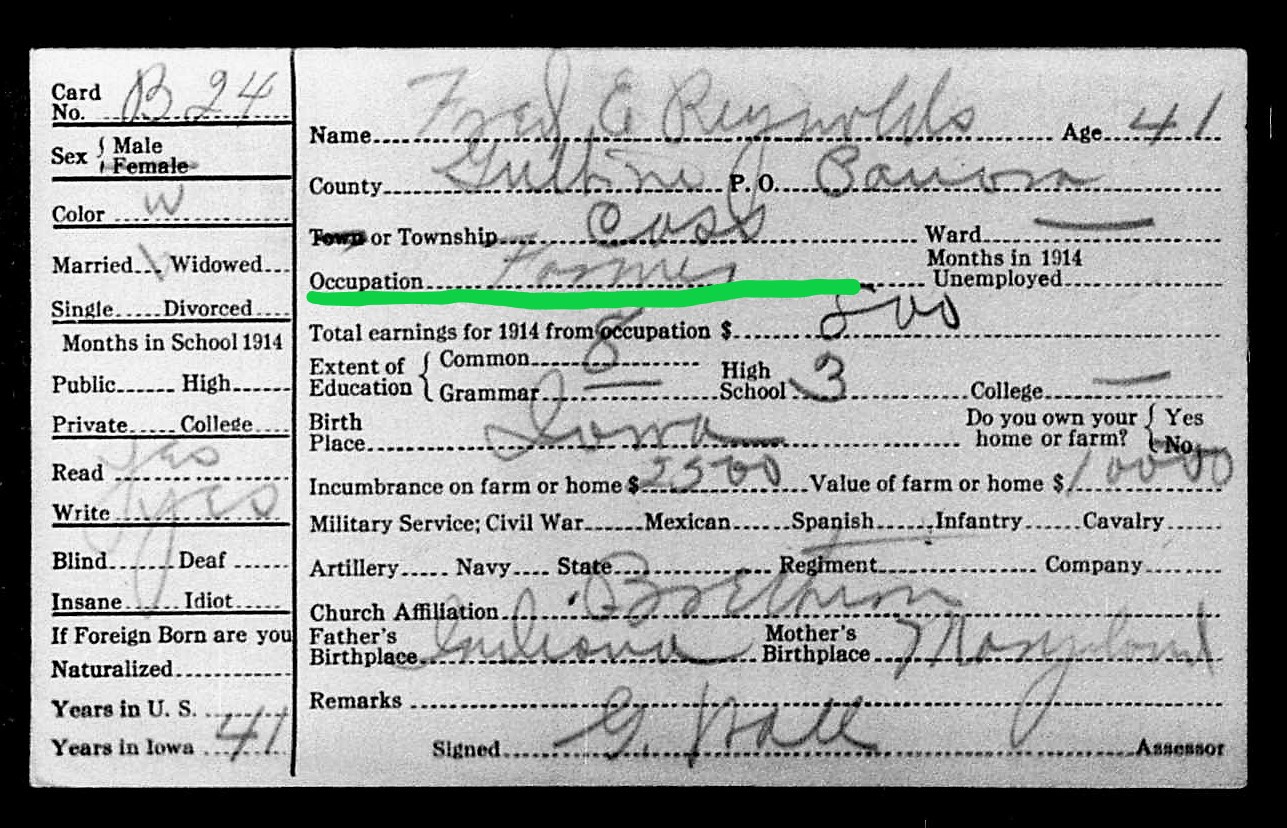 Card No. B 24
Sex { Male
Female
Color W
Married Widowed
Single Divorced
Months in School 1914
Public High
Private College
Read Yes
Write yes
Blind Deaf
Insane Idiot
If Foreign Born are you
Naturalized
Years in U. S.
Years in Iowa 41
Name Fred E Reynolds Age 41
County Guthrie P. O. Panora
Town or Township Cass Ward —
Occupation Farmer Months in 1914 Unemployed
Total earnings for 1914 from occupation $ 800
Extent of Education { Common 8
Grammar — High School 3 College —
Birth Place Iowa Do you own your home or farm? { Yes
No
Incumbrance on farm or home $ 2500 Value of farm or home $ 10000
Military Service; Civil War Mexican Spanish Infantry Cavalry
Artillery Navy State Regiment Company
Church Affiliation Brethren
Father's Birthplace Indiana Mother's Birthplace Maryland
Remarks
Signed G. Hall Assessor